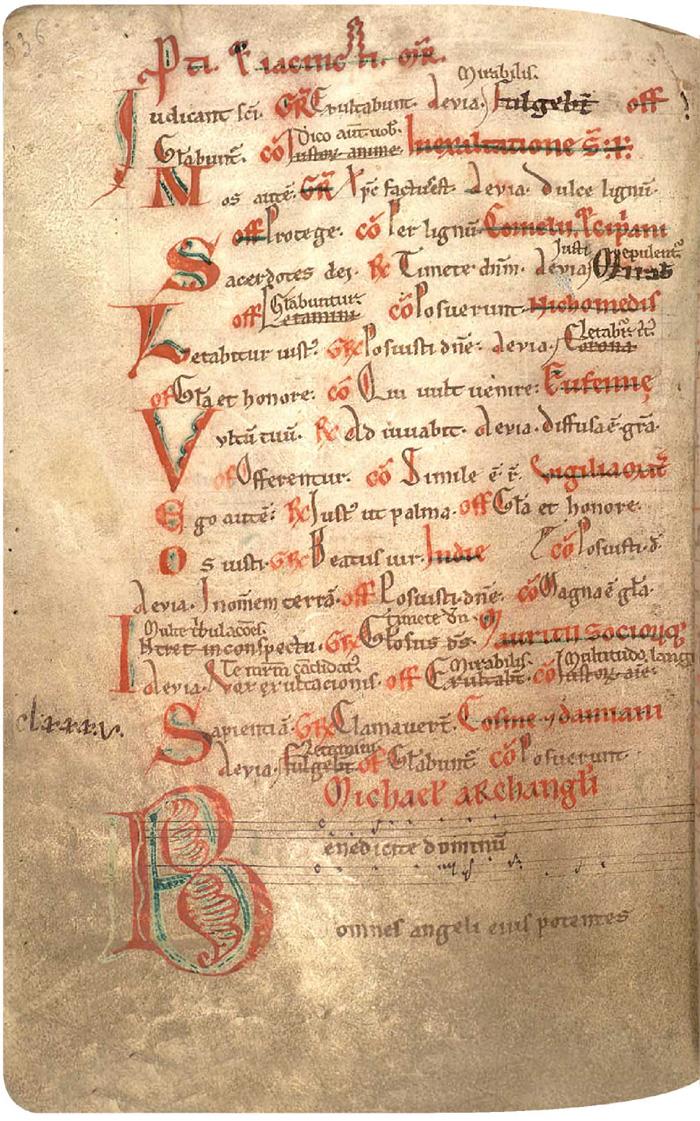 Pti. & iacincti. mr̄.
Mirabilis.
Iudicant sc̄i. GR Exultabunt. aevia. Fulgebt̄ off
Glabunt̄. cō Dico aut̄ uob. Iustor anime. In exaltatione s. ✝.
Nos aute. GR Xpc factus est. aevia. Dulce lignū.
off Protege. cō Per lignū. Cornelii. & cipani
Sacerdotes dei. R Timete dnm. aevia. Iusti epulent̄
off Glabuntur. Letamini cō Posuerunt. Nichomedis
Letabitur iust. GR Posuisti dn̄e. aevia. Letabit̄ Corona
of Gl̄a et honore. cō Qui uult uenire. Eufemie
Vultū tuū. R Adiuuabit. aevia. diffusa ē gr̄a.
of Offerentur. cō Simile ē r̄.
Ego aute. R Iust ut palma. off Gl̄a et honore.
Os iusti. GR Beatus uir. In die cō Posuisti. d
aevia. I nomem terrā. off Posuisti. dn̄e. cō Magna ē gl̄a.
Multe tbulacōes. timete dn̄
Intret in conspectu. GR Glosus ds̄. Mauritii socioruq
Te mr̄m cādidat Mirabilis. Multitudo langu
aevia. Vox exultacionis. off Exultabt̄. cō Iustor aīe.
clxxxv.
Sapientiā. GR Clamauert̄. Cosme & damiani
Letamini
aevia. fulgebt̄. of Glabunt̄ cō Posuerunt.
Michael archangli
Benedicite dominū
omnes angeli eius potentes